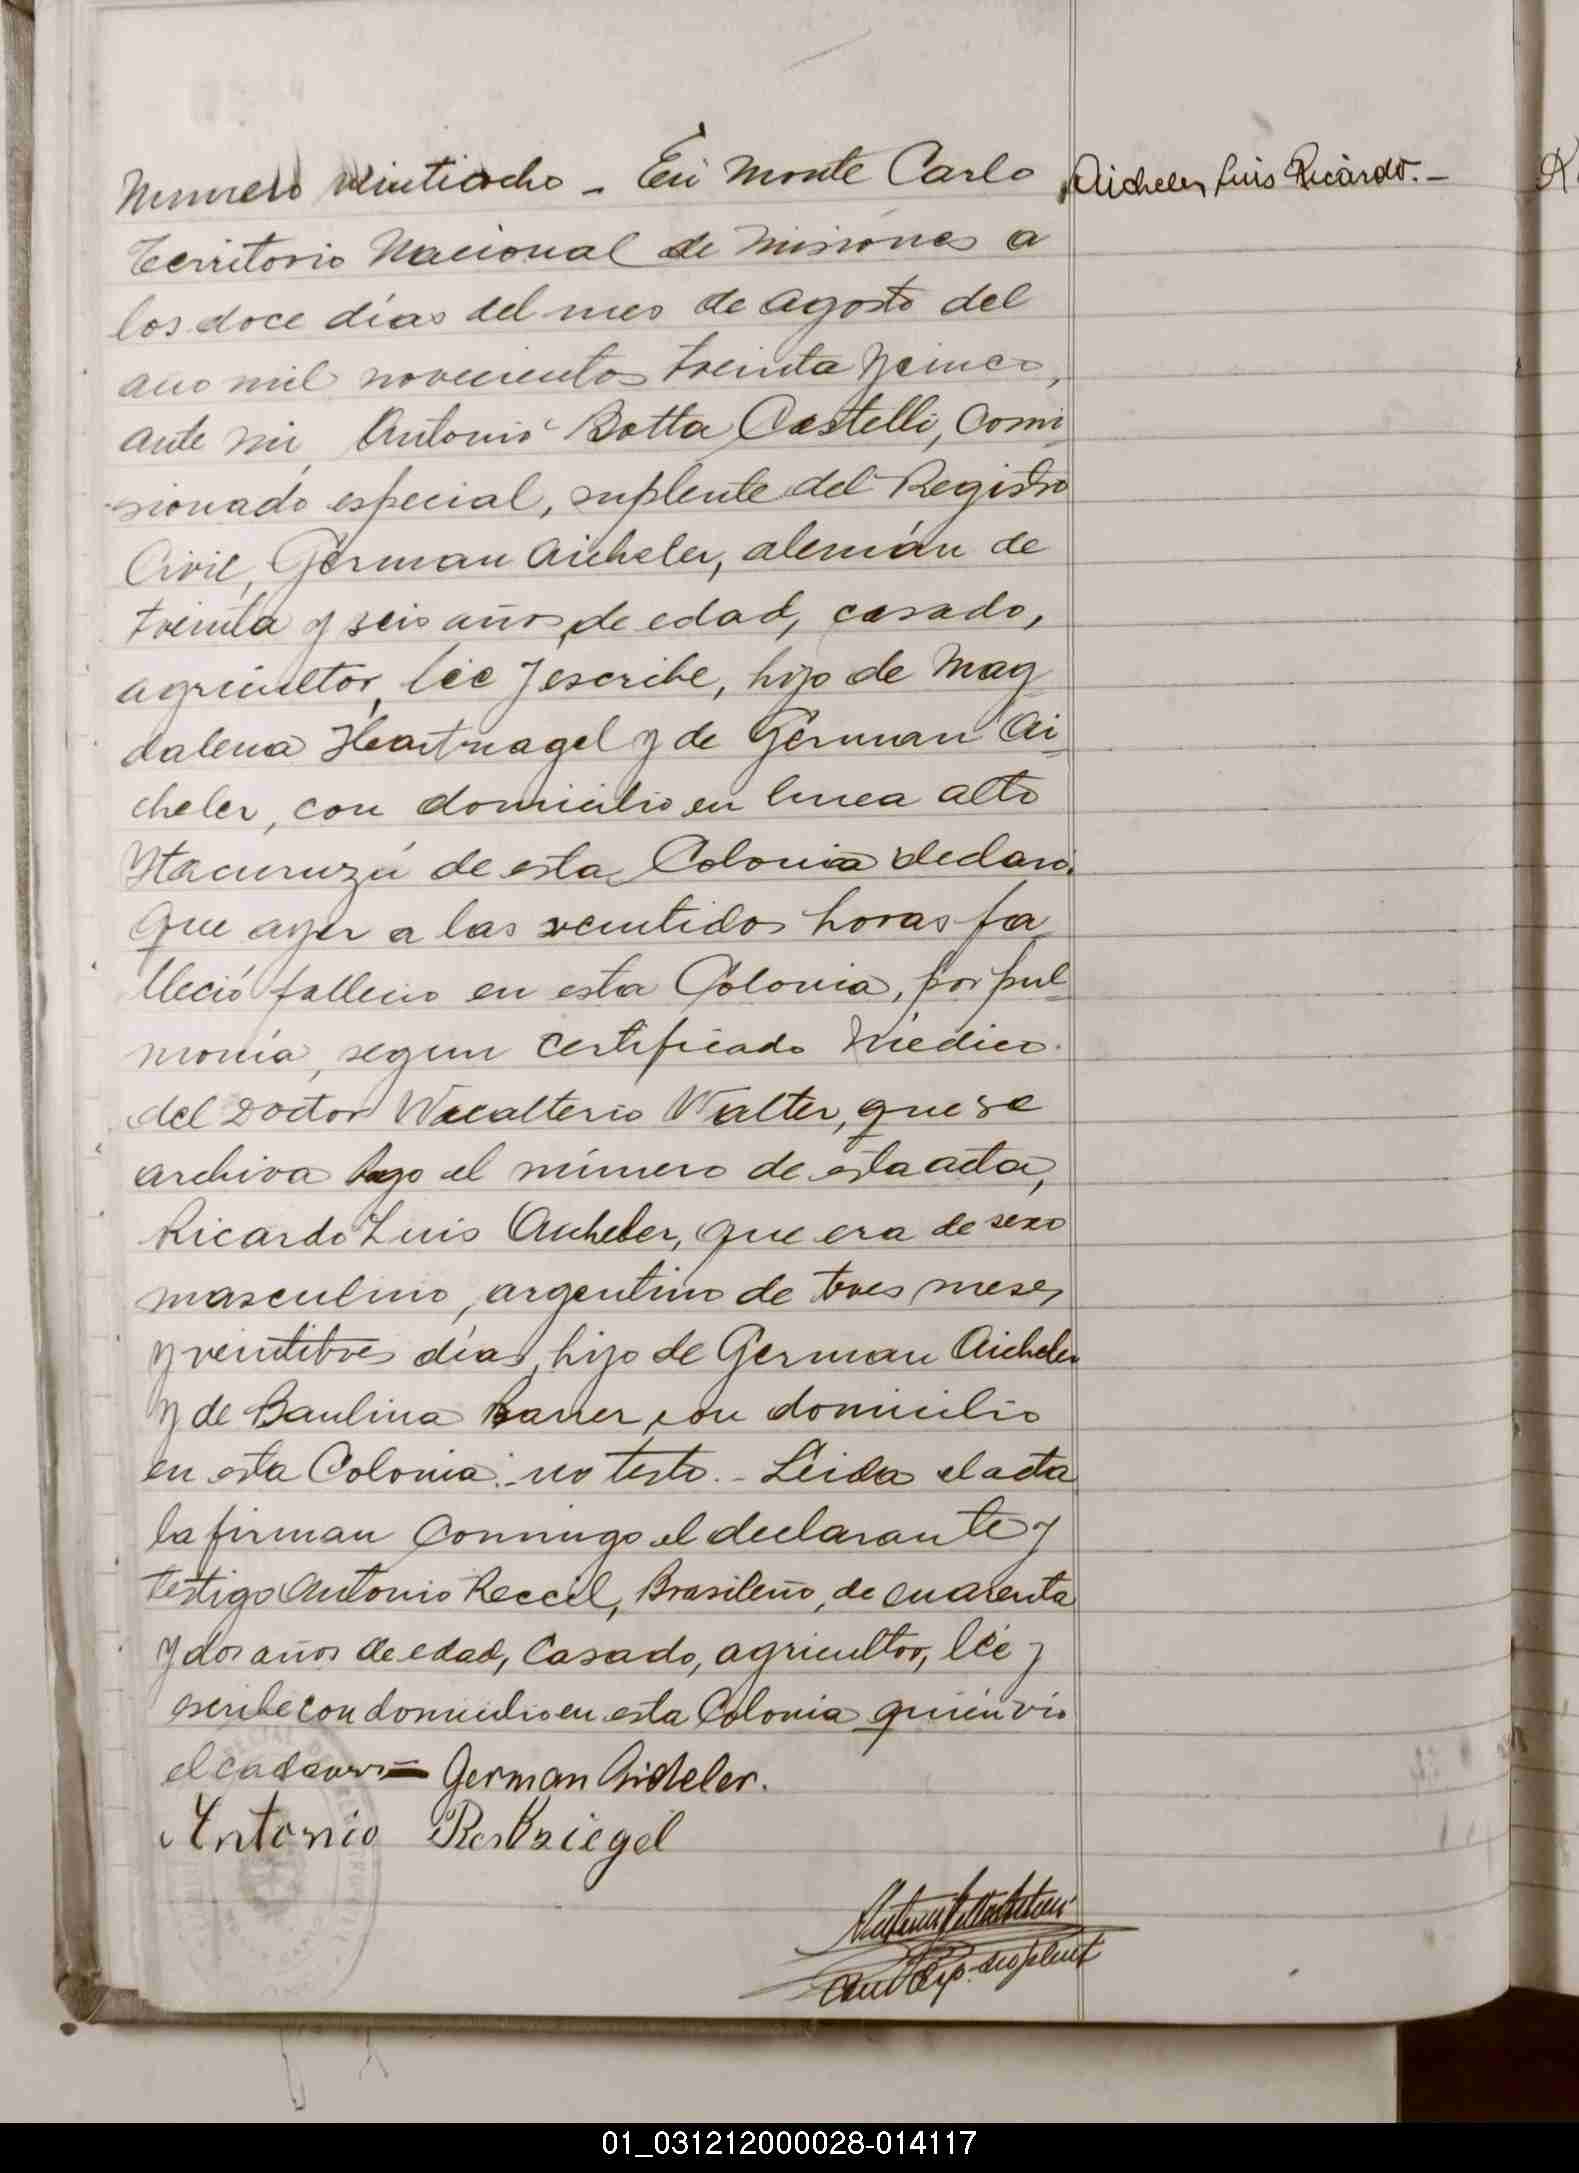 Numero veintiocho - En Monte Carlo
Aicheler Luis Ricardo. -
Territorio Nacional de Misiones a
los doce días del mes de agosto del
ano mil novecientos treinta y cinco,
ante mi, Antonio Botta Castelli, Comi
sionado especial, suplente del Registro
Civil, German Aicheler, alemán de
treinta y seis años de edad, casado,
agricultor, lee y escribe, hijo de Mag
dalena Heartnagel y de German Ai-
cheler, con domicilio en linea alto
Ytacuruzú de esta Colonia declaró:
Que ayer a las veintidos horas fa
lleció fallecio en esta Colonia, por pul-
monía, segun certificado Médico
del Doctor Walter, que se
archiva bajo el número de esta acta,
Ricardo Luis Aicheler, que era de sexo
masculino, argentino de tres meses
y veintitres días, hijo de German Aicheler
y de Baulina con domicilio
en esta Colonia.- no testo.- Leida el acta
la firman conmigo el declarante y
testigo Antonio Reccil, Brasileño, de cuarenta
y dos años de edad, casado, agricultor, lee y
escribe con domicilio en esta Colonia quién vió
el cadaver= German Aicheler.
Antonio
01_031212000028-014117